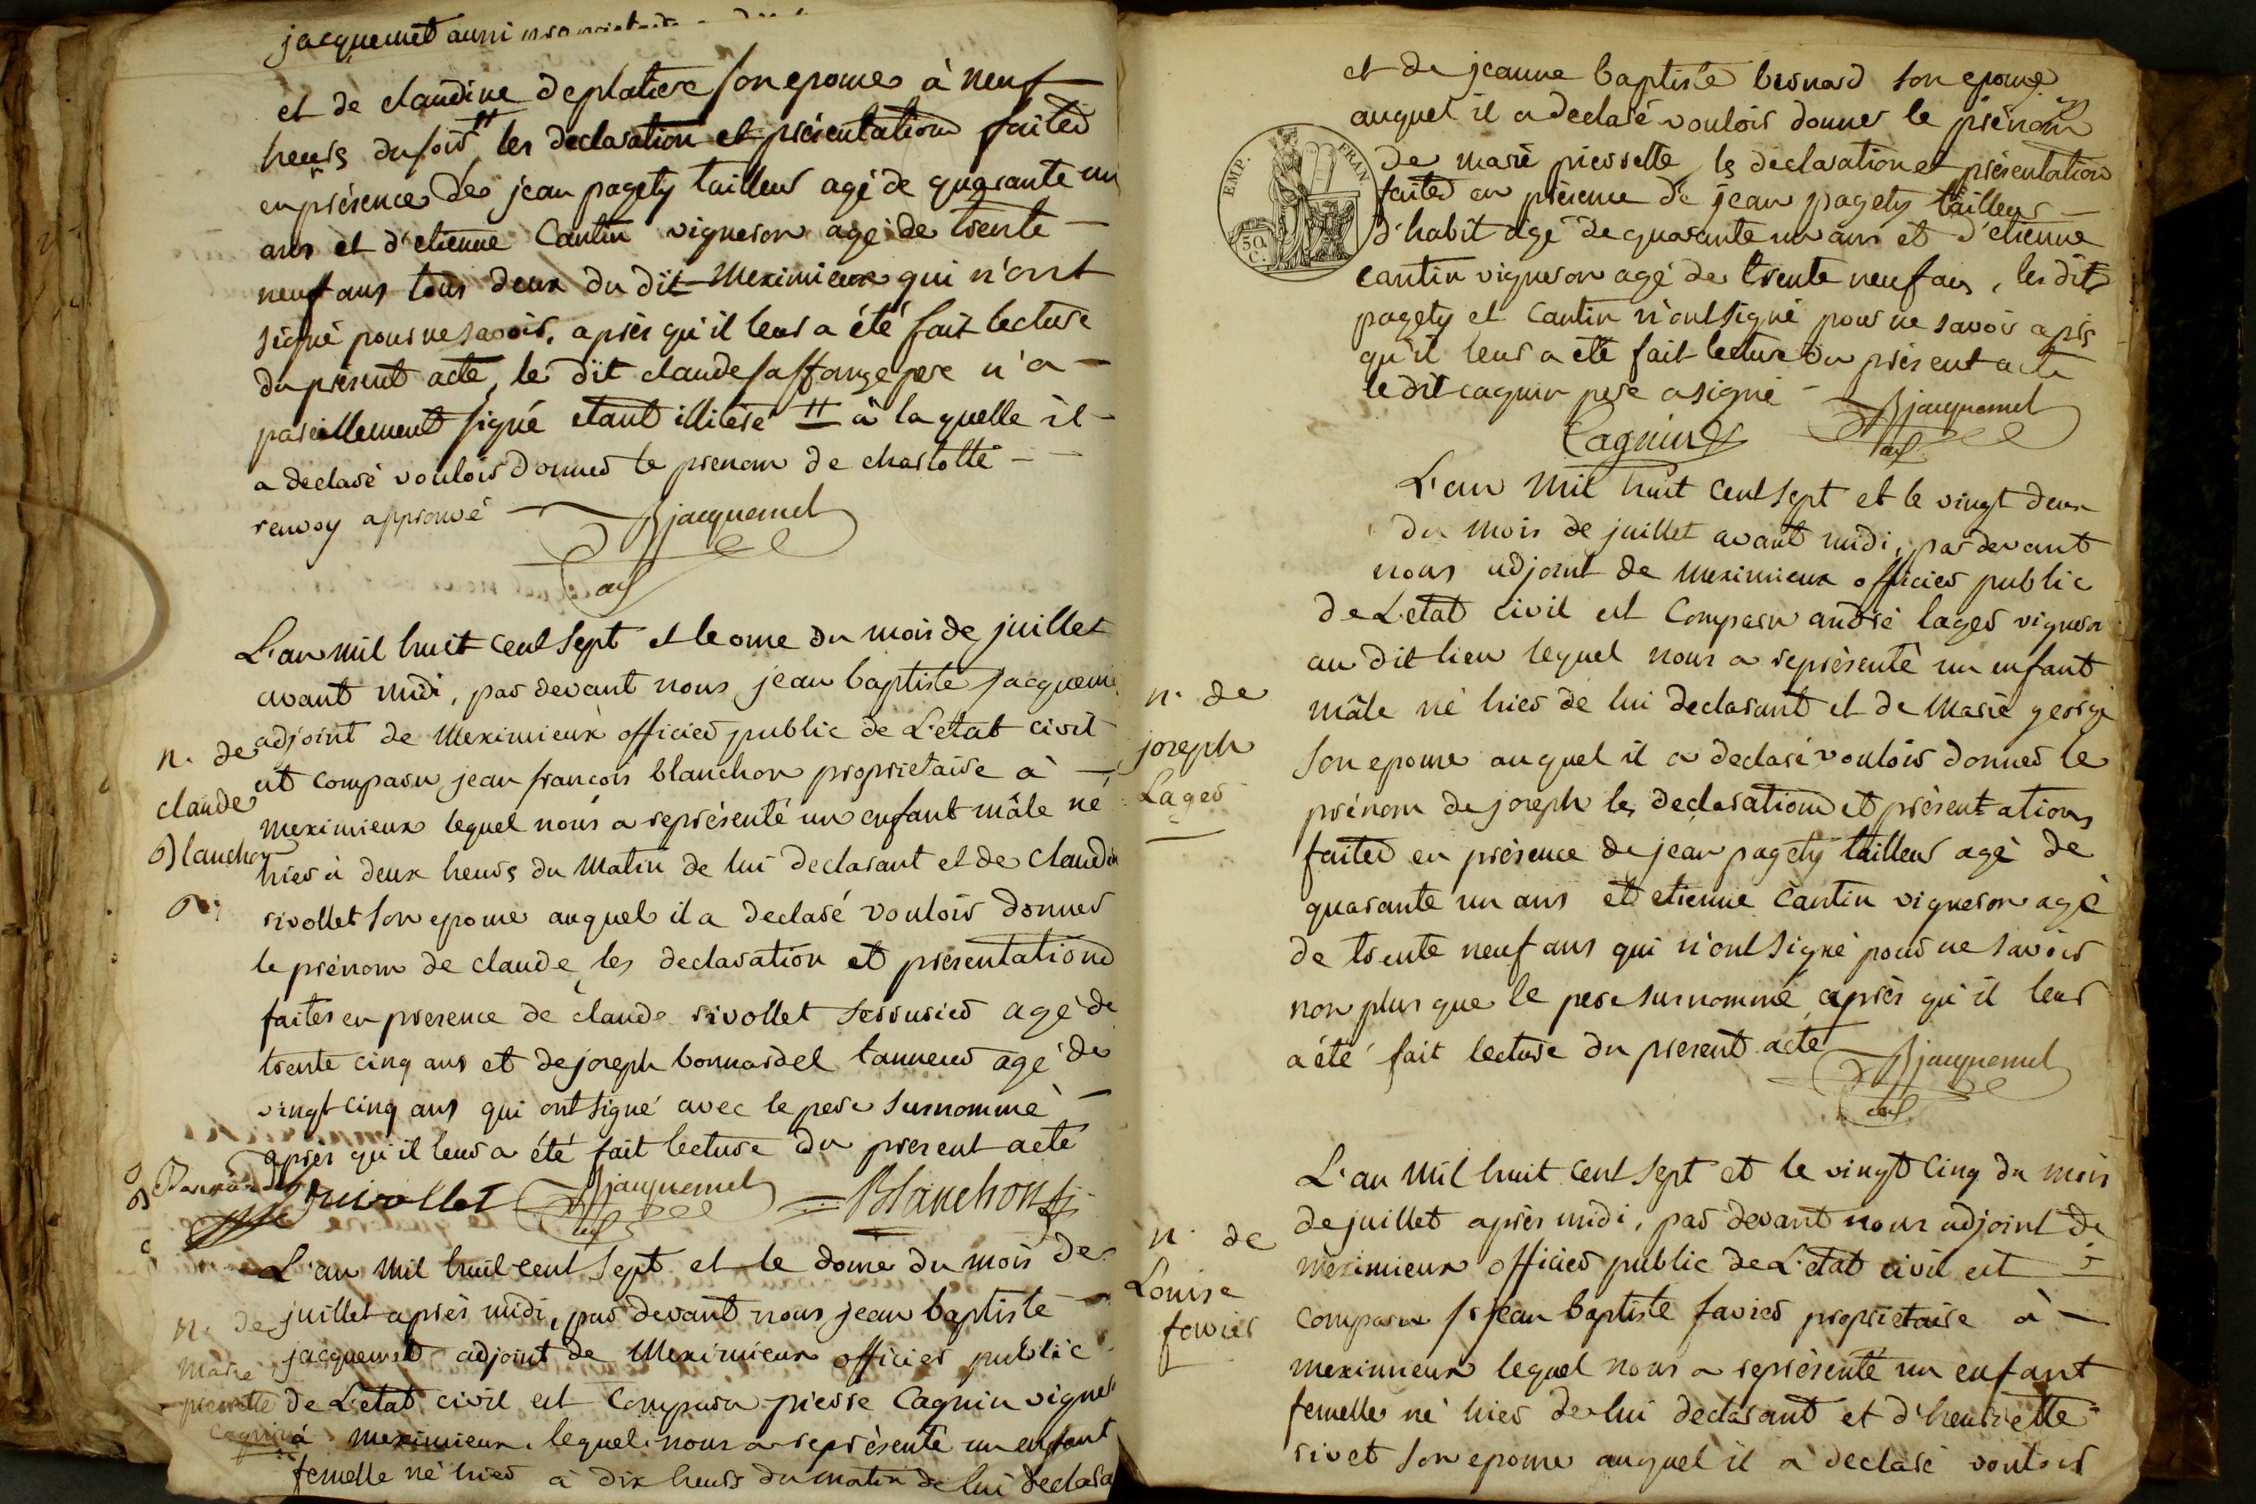 jacquemet aussi
et de claudine deplatiere son epouse à neuf
heurs du soir # les declaration et présentations faites
en présence de jean pagety tailleur agé de quarante un
ans et d'etienne Cantin vigneron agé de trente
neuf ans tous deux du dit Meximieux qui n'ont
signé pour ne savoir. après qu'il leur a été fait lecture
du présent acte, le dit claude saffange pere n'a
pareillement signé etant illiteré # à laquelle il
a declaré vouloir donner le prenom de charlotte
renvoy approuvé Bjacquemet
adj
L'an mil huit cent sept et le onze du mois de juillet
avant midi, par devant nous jean baptiste jacqueme
adjoint de Meximieux officier public de L'etat civil
est comparu jean françois blanchon proprietaire à
meximieux lequel nous a représenté un enfant mâle né
hier à deux heurs du Matin de lui declarant et de Claudin
rivollet son epouse auquel il a declaré vouloir donner
le prénom de claude, les declaration et présentations
faites en presence de claude rivollet serrurier agé de
trente cinq ans et de joseph bonnardel tanneur agé de
vingt cinq ans qui ont signé avec le pere surnommé
après qu'il leur a été fait lecture du present acte
n. de
claude
Blanchon
rivollet Bjacquemet Blanchon
adj
L'an Mil huit cent sept et le douze du mois de
juillet après midi, par devant nous jean baptiste
jacquemet adjoint de Meximieux officier public
de L'etat civil est Comparu pierre Cagnin vigner
à meximieux, lequel nous a représenté un enfant
femelle né hier à dix heurs du matin de lui declara
n. de
Marie
pierrette
Cagnin
et de jeanne baptiste bernard son epouse
auquel il a declaré vouloir donner le prénom
de marie pierrette, les declaration et présentation
faites en présence de jean pagety tailleur
d'habit agé de quarante un ans et d'etienne
cantin vigneron agé de trente neuf ans, les dits
pagety et Cantin n'ont signé pour ne savoir après
qu'il leur a été fait lecture du présent acte
le dit cagnin pere a signé Bjacquemet
Cagnin adj
EMP. FRAN.
50
C.
L'an Mil huit cent sept et le vingt deux
du mois de juillet avant midi, par devant
nous adjoint de Meximieux officier public
de L'etat civil est Comparu andré lager vigneron
au dit lieu lequel nous a représenté un enfant
mâle né hier de lui declarant et de Marie george
son epouse auquel il a declaré vouloir donner le
prénom de joseph les declarations et présentations
faites en présence de jean pagety tailleur agé de
quarante un ans et etienne Cantin vigneron agé
de trente neuf ans qui n'ont signé pour ne savoir
non plus que le pere surnommé, après qu'il leur
a été fait lecture du present acte Bjacquemet
adj
n. de
joseph
Lager
L'an Mil huit cent sept et le vingt cinq du mois
de juillet après midi, par devant nous adjoint de
meximieux officier public de L'etat civil est
comparu sr jean baptiste favier proprietaire à
meximieux lequel nous a représenté un enfant
femelle né hier de lui declarant et d'henriette
rivet son epouse auquel il a declaré vouloir
n. de
Louise
favier